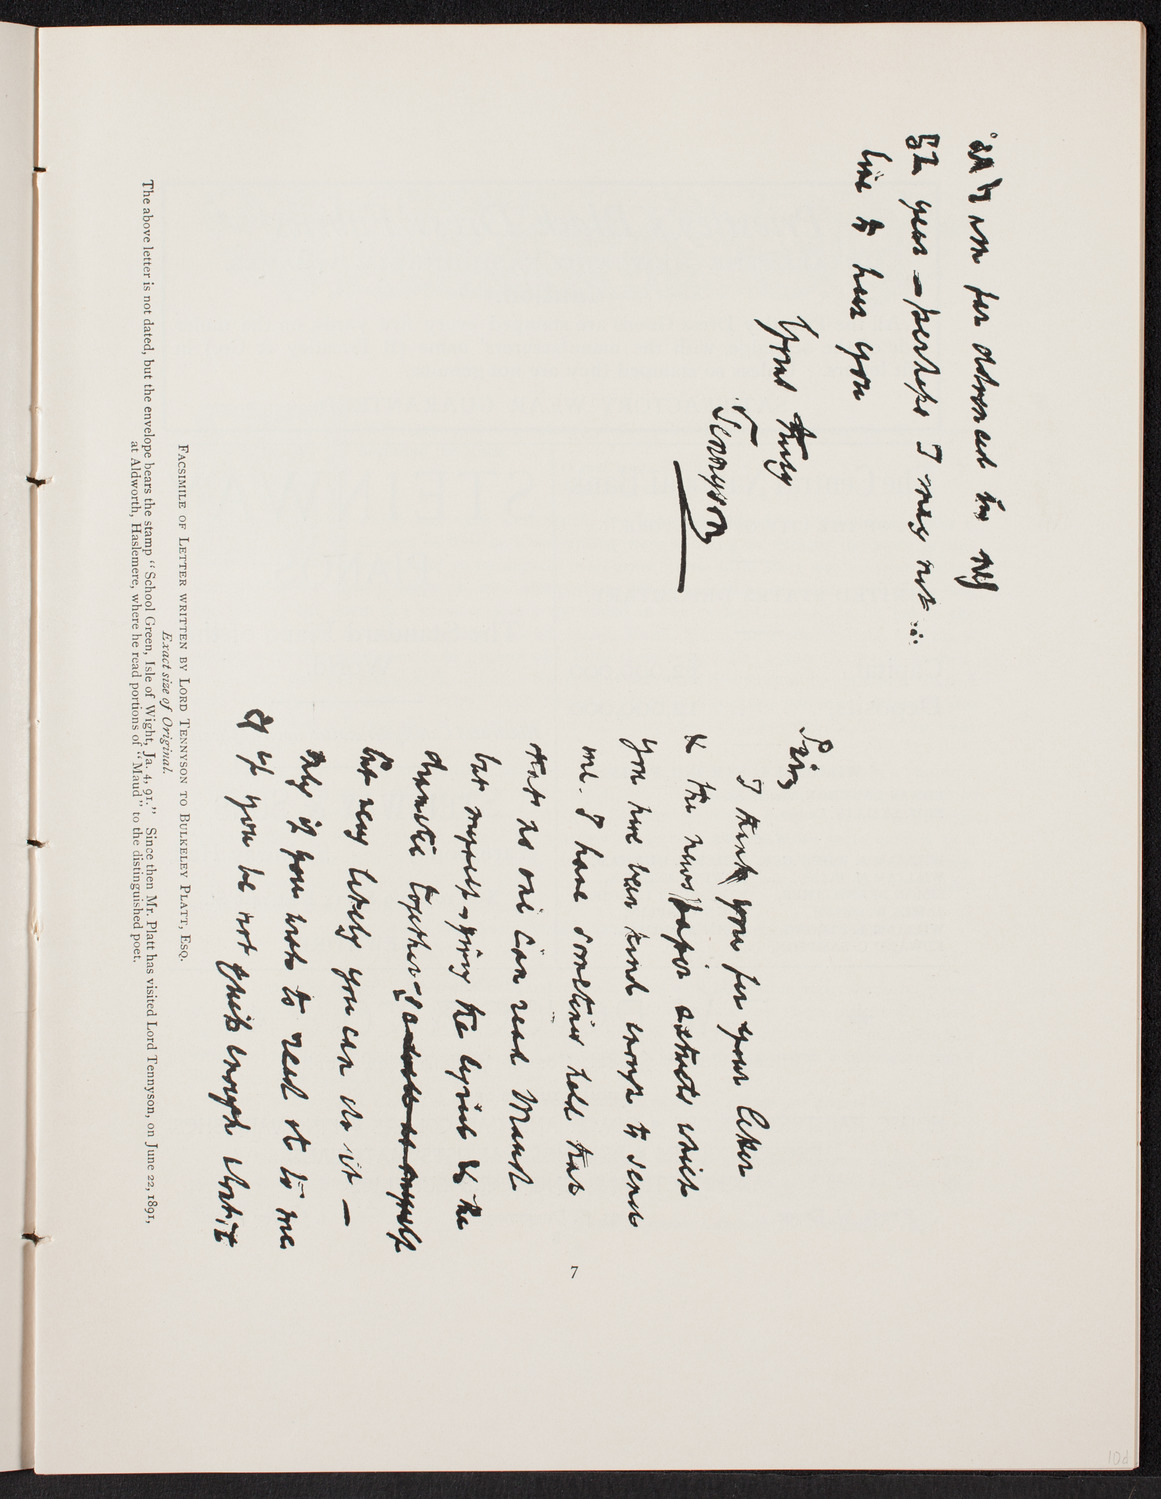 Sir,
I thank you for your letter
& the newspaper extracts which
you have been kind enough to send
me. I have sometimes held that
that no one can read Maud
but myself, giving the lyrical & the
dramatic together -
but very likely you can do it —
only if you wish to read it to me
& if you be not quick enough about it
far advanced in my
year — perhaps I may not
live to hear you
Yours truly
Tennyson
FACSIMILE OF LETTER WRITTEN BY LORD TENNYSON TO BULKELEY PLATT, ESQ.
Exact size of Original.
The above letter is not dated, but the envelope bears the stamp “School Green, Isle of Wight, Ja. 4, 91.” Since then Mr. Platt has visited Lord Tennyson, on June 22, 1891,
at Aldworth, Haslemere, where he read portions of “Maud” to the distinguished poet.
7
10d